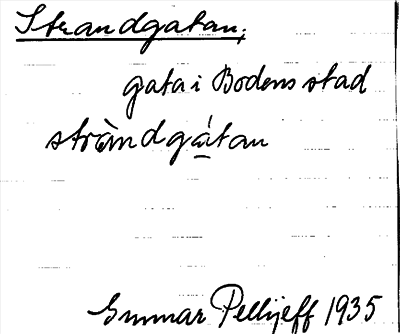 Strandgatan;
gata i Bodens stad
stràndgátan
Gunnar Pellijeff 1935